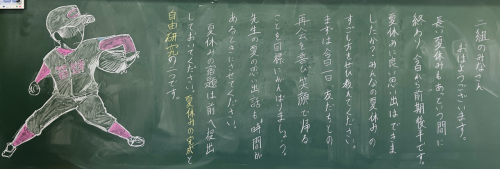 二組のみなさん
おはようございます。
長い夏休みもあっという間に
終わり、今日から前期後半です。
夏休みの良い思い出はできま
したか？みんなの夏休みの
すごし方もぜひ教えてください。
まずは今日一日友だちとの
再会を喜び笑顔で帰る
ことを目標にがんばりましょう。
先生の夏の思い出話も時間が
あるときにさせてください。
夏休みの宿題は前へ提出
しておいてください。夏休みの宝成と
自由研究の二つです。